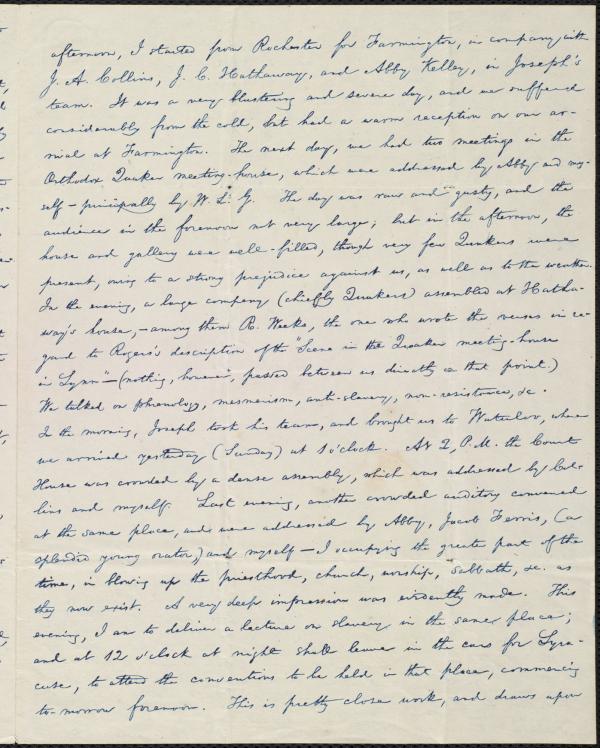 afternoon, I started from Rochester for Farmington, in company with
J. A. Collins, J. C. Hathaway, and Abby Kelley, in Joseph's
team. It was a very blustering and severe day, and we suffered
considerably from the cold, but had a warm reception on our ar-
rival at Farmington. The next day, we had two meetings in the
Orthodox Quaker meeting-house, which were addressed by Abby and my-
self—principally by W. L. G. The day was raw and gusty, and the
audience in the forenoon not very large; but in the afternoon, the
house and gallery were well-filled, though very few Quakers were
present, owing to a strong prejudice against us, as well as to the weather.
In the evening, a large company (chiefly Quakers) assembled at Hatha-
way's house,—among them R. Weeks, the one who wrote the verses in re-
gard to Rogers's description of the "Scene in the Quaker meeting-house
in Lynn"—(nothing, however, passed between us directly on that point.)
We talked on phrenology, mesmerism, anti-slavery, non-resistance, &c.
In the morning, Joseph took his team, and brought us to Waterloo, where
we arrived yesterday (Sunday) at 1 o'clock. At 2, P.M. the Court
House was crowded by a dense assembly, which was addressed by Col-
lins and myself. Last evening, another crowded auditory convened
at the same place, and were addressed by Abby, Jacob Ferris, (a
splendid young orator,) and myself—I occupying the greater part of the
time, in blowing up the priesthood, church, worship, Sabbath, &c. as
they now exist. A very deep impression was evidently made. This
evening, I am to deliver a lecture on slavery in the same place;
and at 12 o'clock at night shall leave in the cars for Syra-
cuse, to attend the conventions to be held in that place, commencing
to-morrow forenoon. This is pretty close work, and draws upon